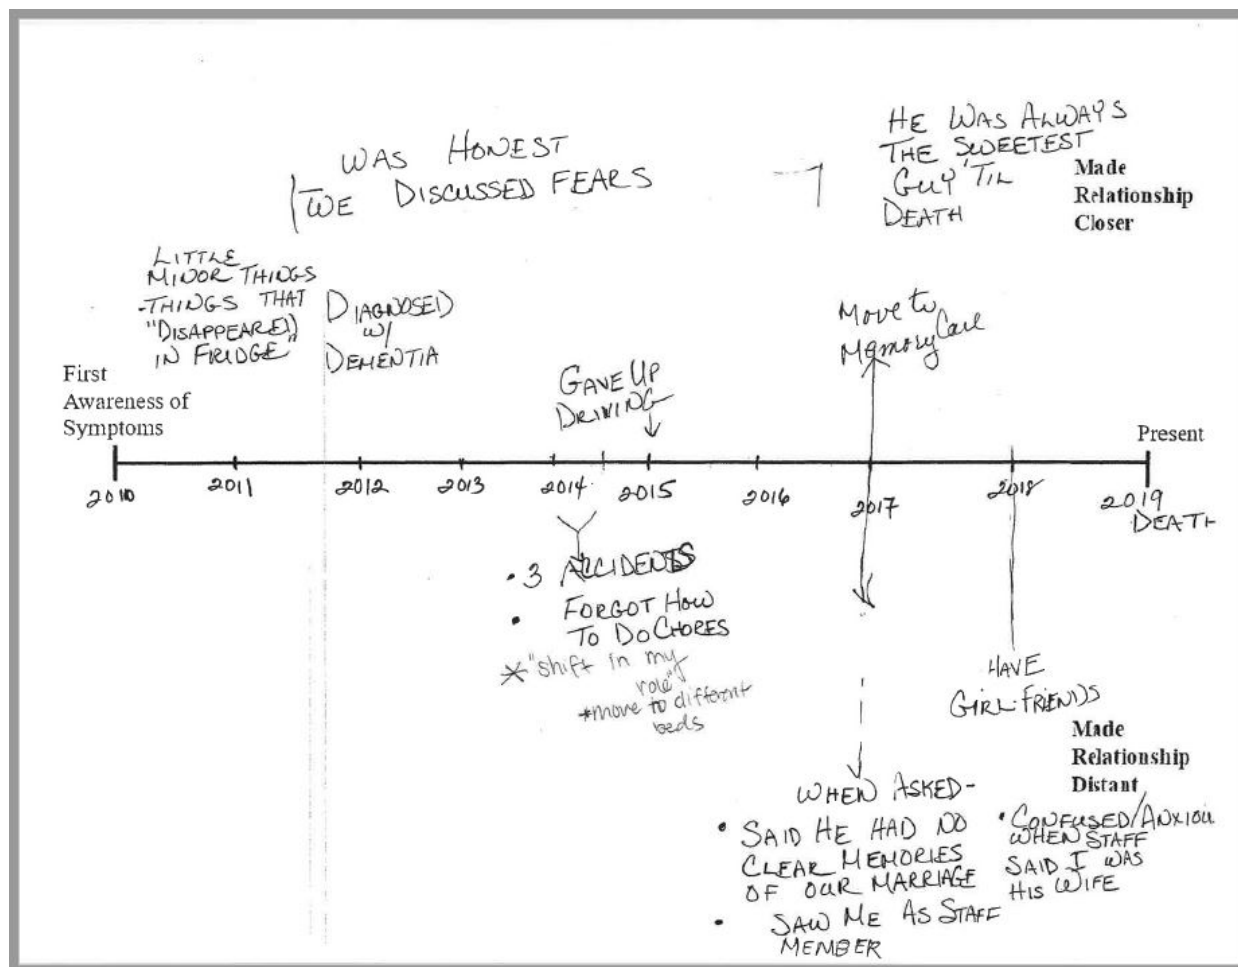 WAS HONEST
WE DISCUSSED FEARS
HE WAS ALWAYS
THE SWEETEST
GUY 'TIL
DEATH
Made
Relationship
Closer
LITTLE
MINOR THINGS
-THINGS THAT
"DISAPPEARED
IN FRIDGE"
DIAGNOSED
W/
DEMENTIA
GAVE UP
DRIVING
Move to
Memory Care
First
Awareness of
Symptoms
Present
2010
2011
2012
2013
2014
2015
2016
2017
2018
2019
DEATH
• 3 ACCIDENTS
• FORGOT HOW
TO DO CHORES
* "shift in my
role"
*move to different
beds
HAVE
GIRL-FRIENDS
Made
Relationship
Distant
WHEN ASKED-
• SAID HE HAD NO
CLEAR MEMORIES
OF OUR MARRIAGE
• SAW ME AS STAFF
MEMBER
• CONFUSED/ANXIOU
WHEN STAFF
SAID I WAS
HIS WIFE